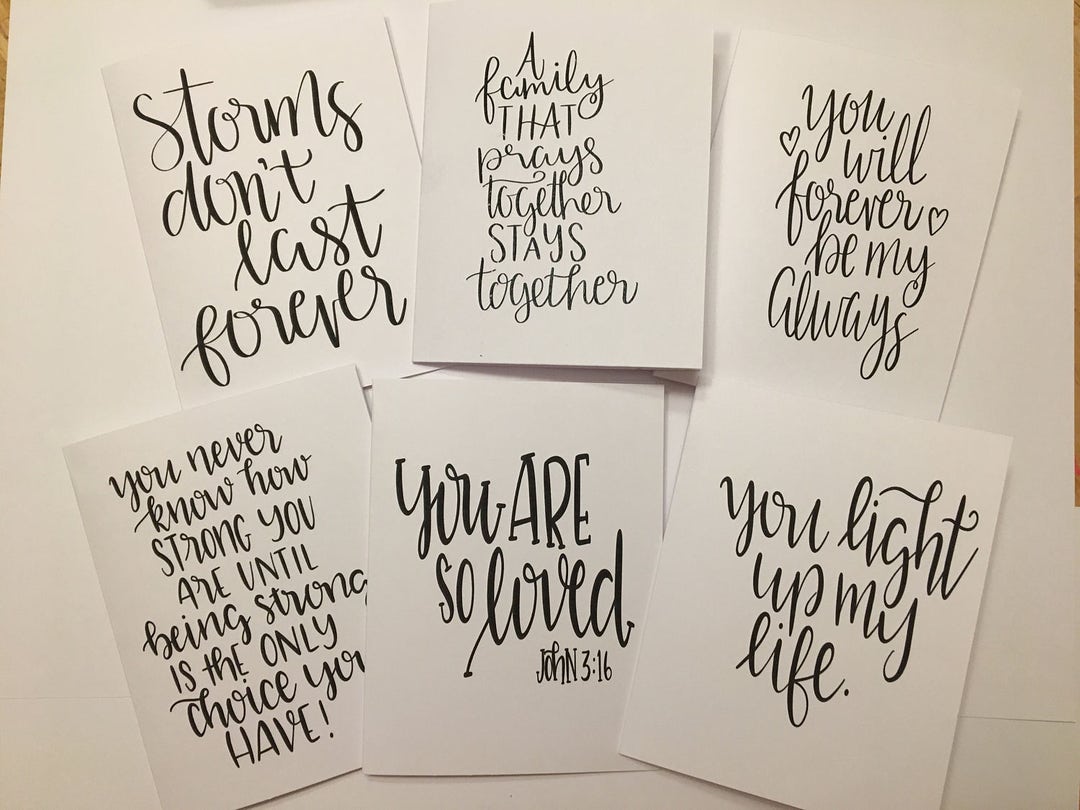 Storms
don't
last
forever
A
family
THAT
prays
together
STAYS
together
you
will
forever
be my
Always
you never
know how
STRONG YOU
ARE UNTIL
being strong
IS thE ONLY
choice you
HAVE!
you ARE
so loved
JohN 3:16
you light
up my
life.